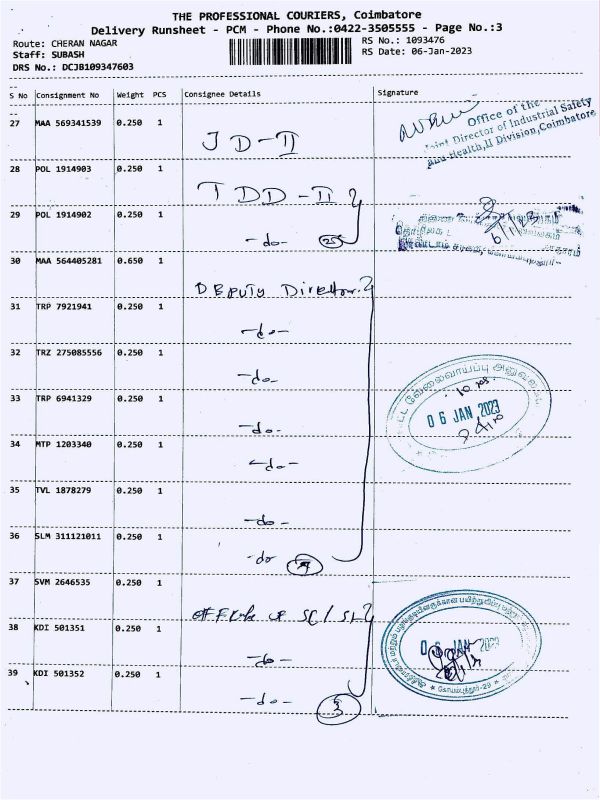 THE PROFESSIONAL COURIERS, Coimbatore
Delivery Runsheet - PCM - Phone No.:0422-3505555 - Page No.:3
Route: CHERAN NAGAR
RS No.: 1093476
Staff: SUBASH
RS Date: 06-Jan-2023
DRS No.: DCJB109347603
S No Consignment No Weight PCS Consignee Details Signature
27 MAA 569341539 0.250 1
JD-II
Office of the
Joint Director of Industrial Safety
and Health,II Division,Coimbatore
28 POL 1914903 0.250 1
TDD-II
29 POL 1914902 0.250 1
-do-
6/1/23
30 MAA 564405281 0.650 1
Deputy Director.
31 TRP 7921941 0.250 1
-do-
32 TRZ 275085556 0.250 1
-do-
33 TRP 6941329 0.250 1
-do-
வேலைவாய்ப்பு
06 JAN 2023
34 MTP 1203340 0.250 1
-do-
35 TVL 1878279 0.250 1
-do-
36 SLM 311121011 0.250 1
-do-
37 SVM 2646535 0.250 1
SC/ST
38 KDI 501351 0.250 1
-do-
06 JAN 2023
39 KDI 501352 0.250 1
-do-
3
கோயம்புத்தூர்-29